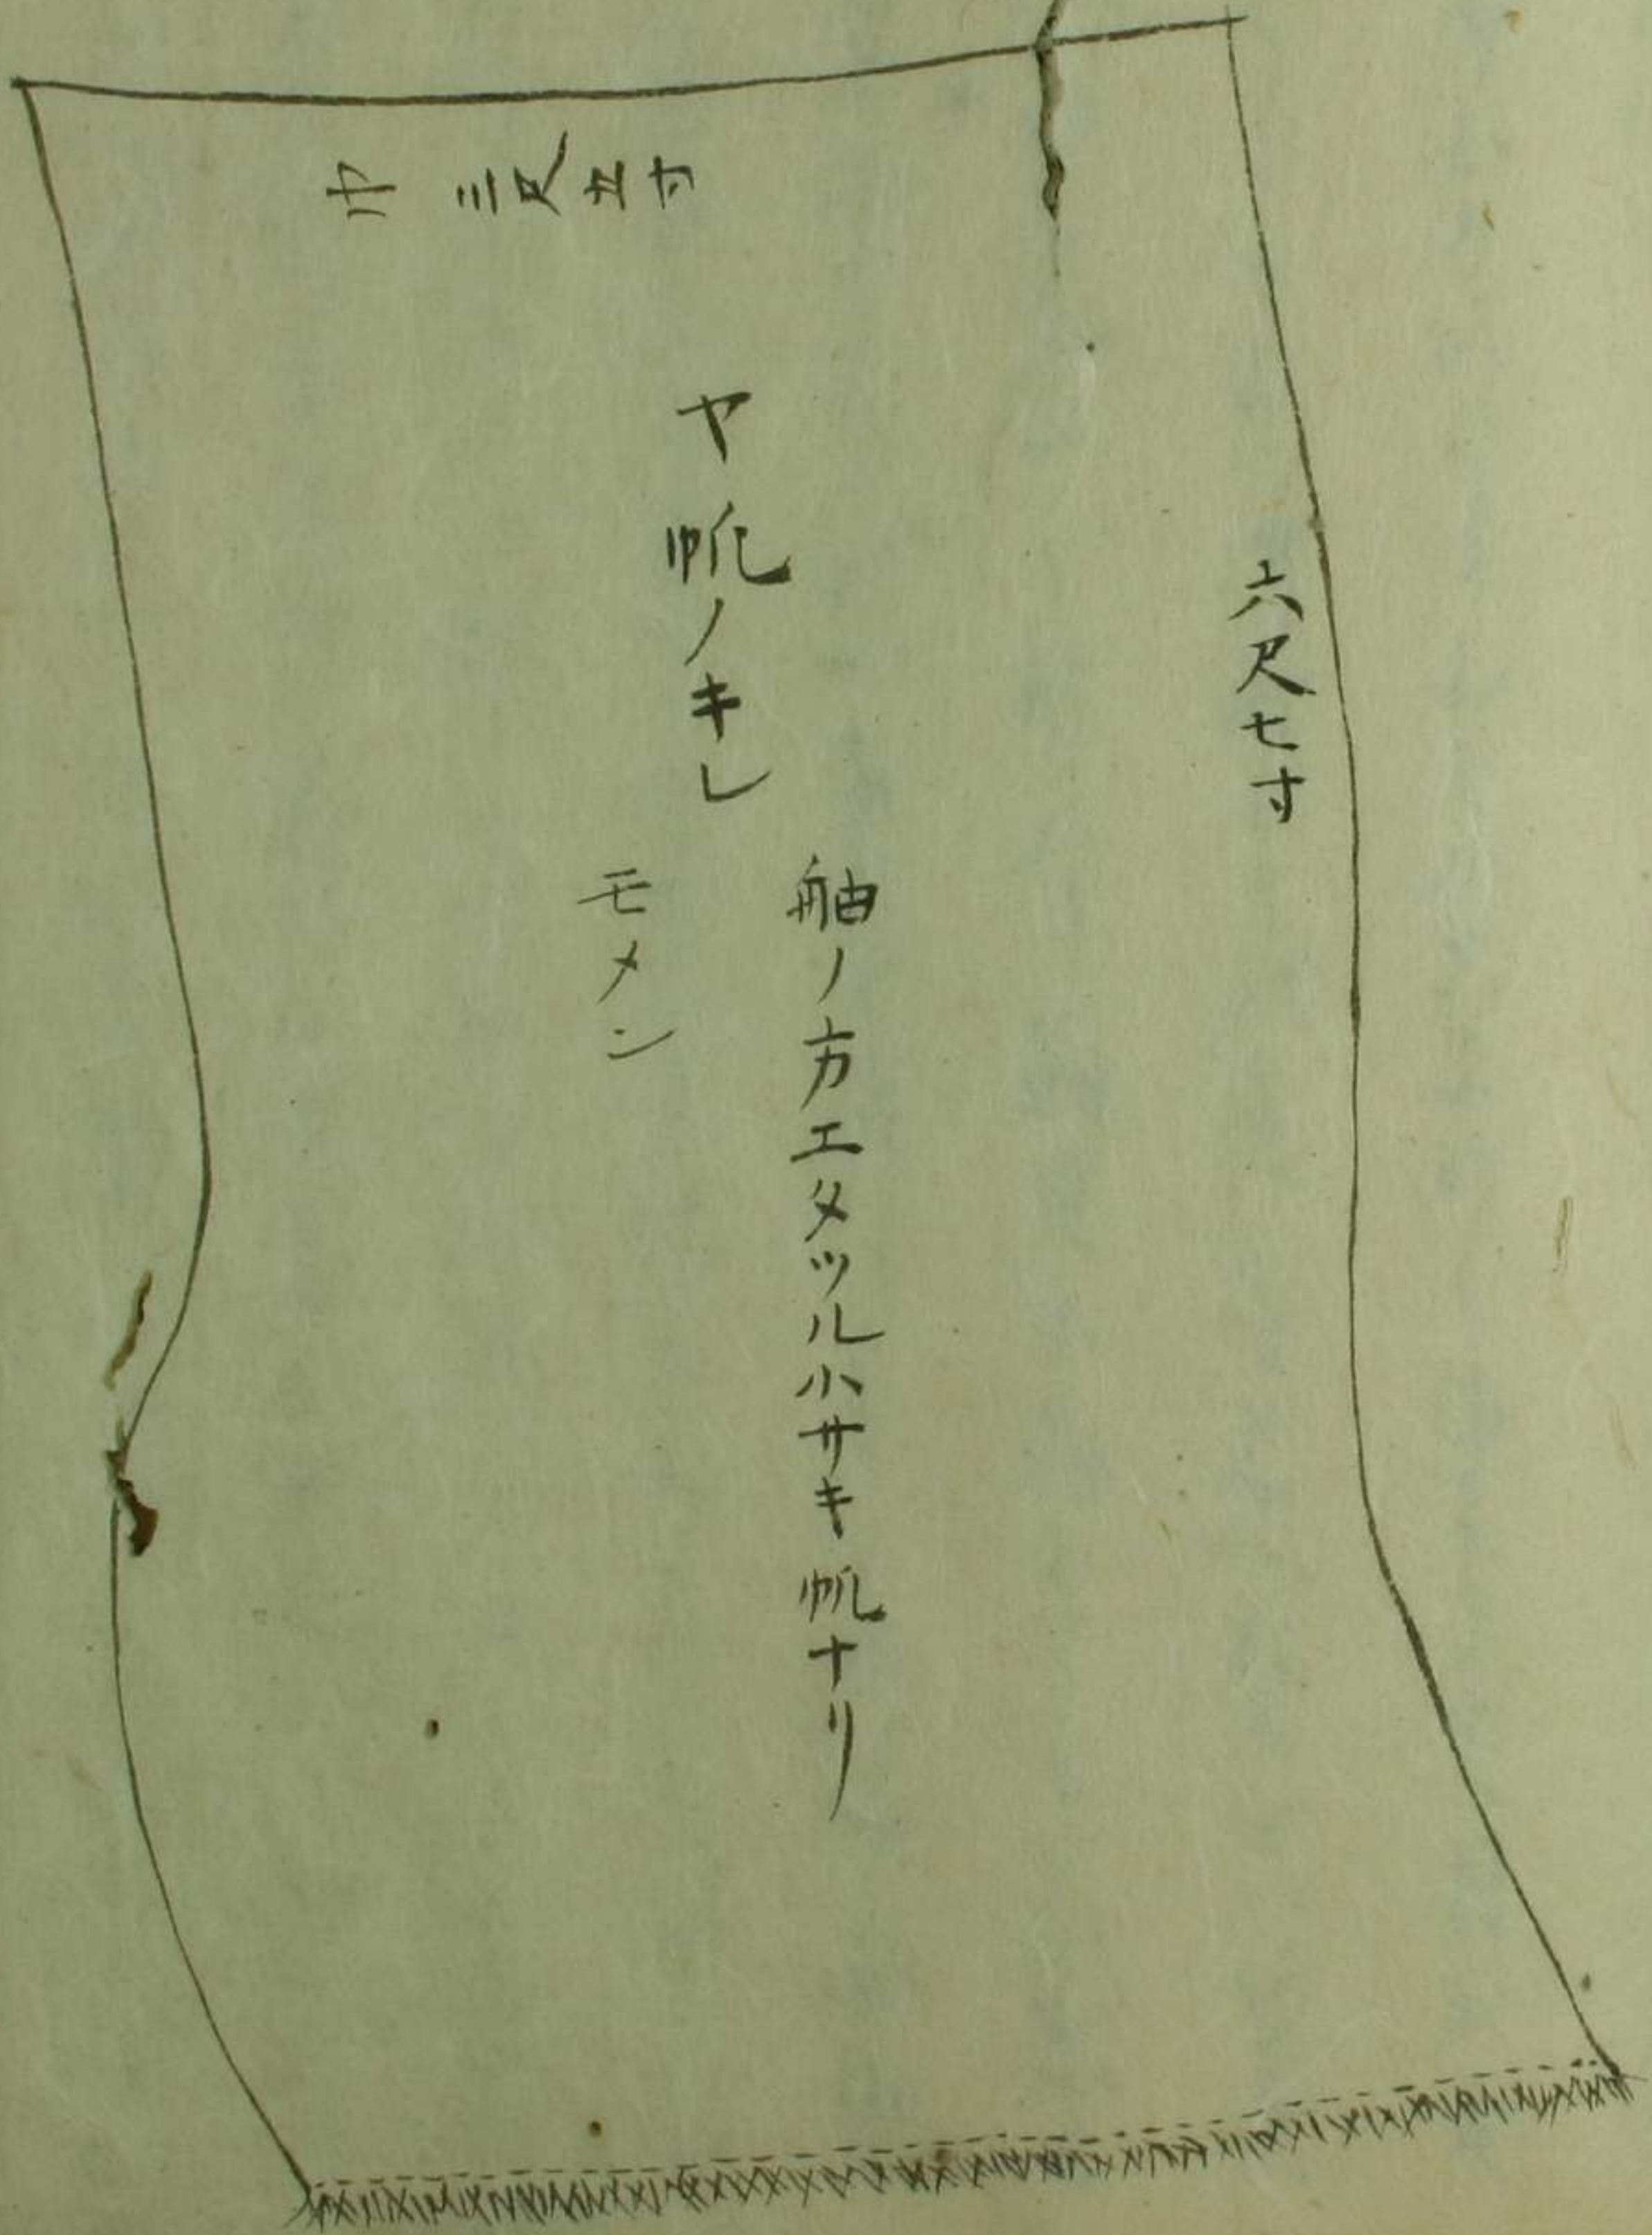 六尺七寸
巾 三尺五寸
ヤ帆ノキレ
舳ノ方エタツル小サキ帆ナリ
モメン